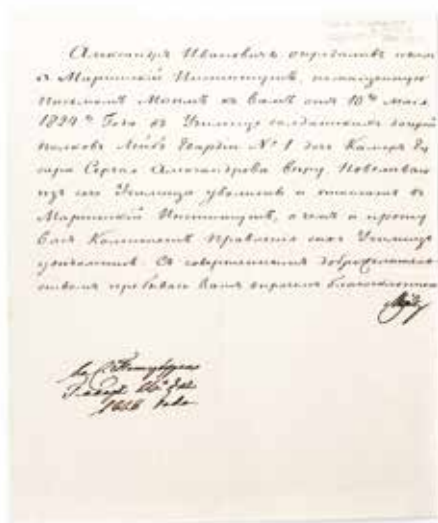 Александръ Ивановичь опредѣливъ нынѣ
въ Маріинскій Институтъ, помѣщенную
Письмомъ Моимъ къ Вамъ отъ 10го Мая
1824го Года въ Училище солдатскихъ дочерей
полковъ Лейбъ Гвардіи № 1 дочь Камеръ
Сергѣя Александрова Вѣру Повелѣваю
изъ сего Училища уволить и отослать въ
Маріинскій Институтъ, о чемъ и прошу
Васъ Комитетъ Правленія онаго Училища
увѣдомить. Съ совершеннымъ доброжелатель-
ствомъ пребываю Вамъ впрочемъ благосклонною
въ С. Петербургѣ
1826 года